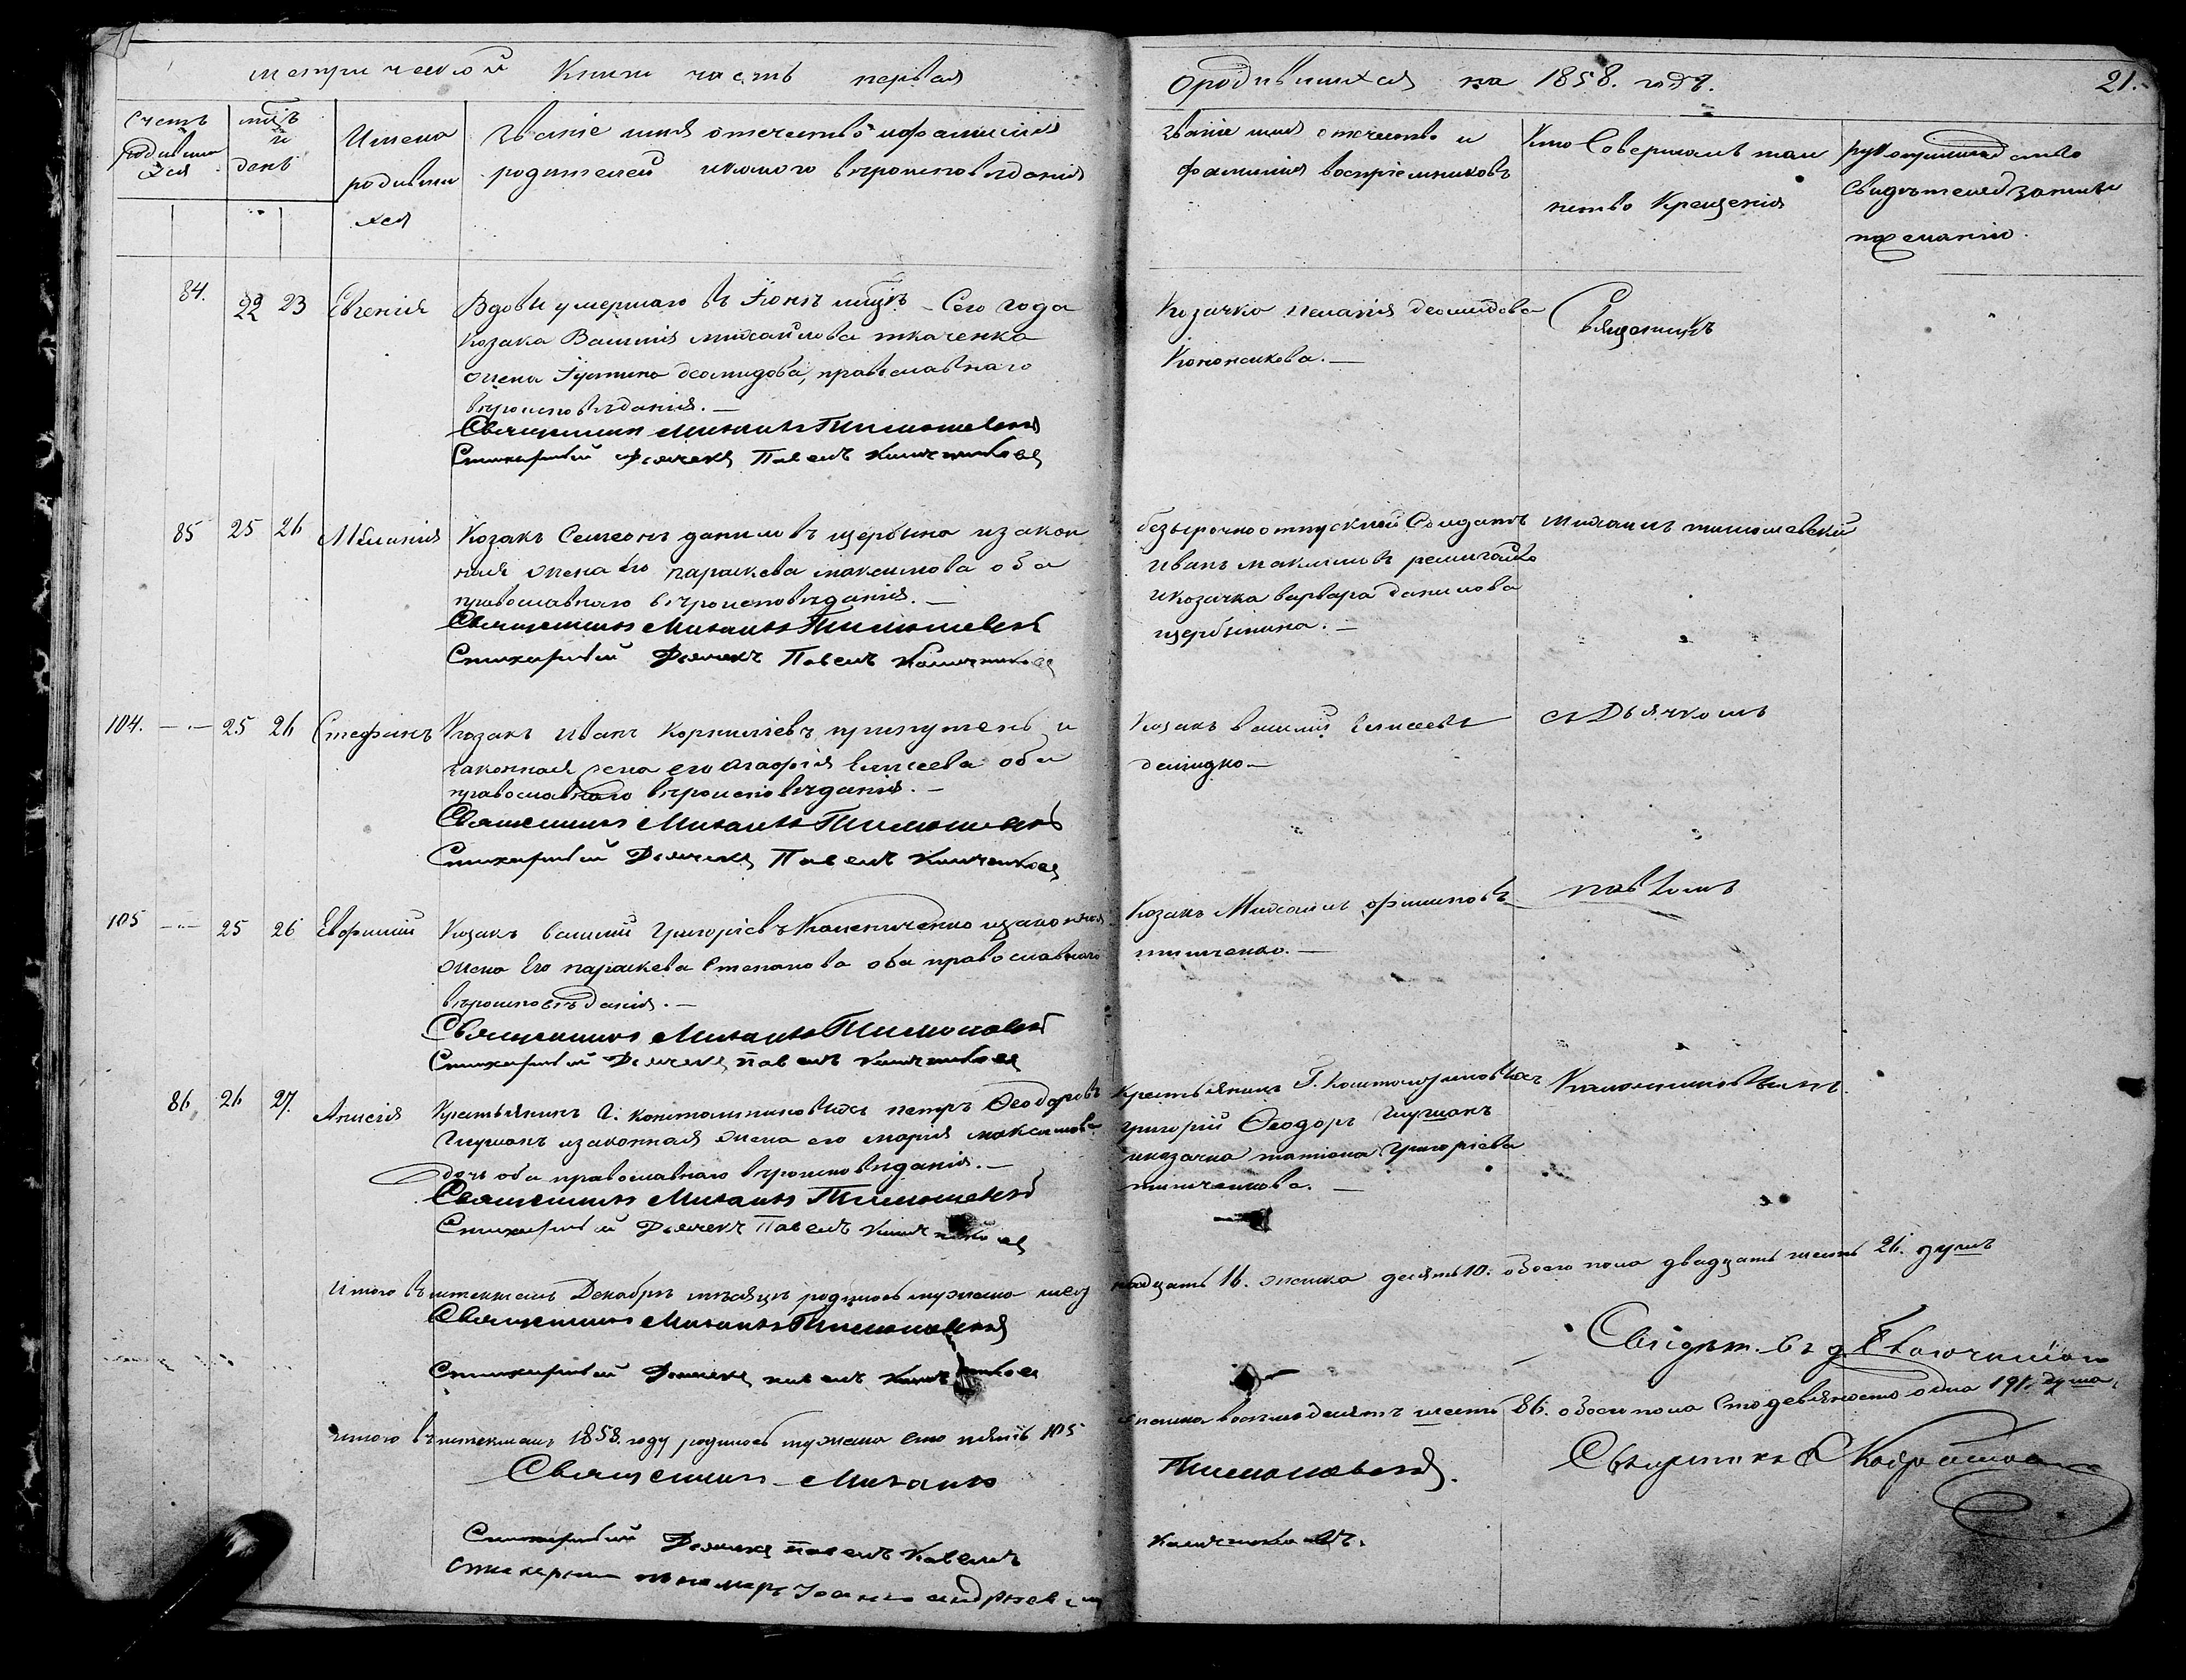 метрической Книги часть первая
о родившихся на 1858. годъ.
21.
Счетъ родившихся
мць и день
Имена родившихся
Званіе имя отечество и фамилія
родителей и какого вѣроисповѣданія
Званіе имя отечество и
фамилія воспріемниковъ
Кто Совершалъ таи
нство Крещенія
рукоприкладство
свидѣтелей записи
по желанію.
84. 22 23 Евгенія
Вдовы умершаго въ Іюнѣ мцѣ Сего года
Козака Василія михайлова ткаченка
жена Іустина деомидова, православнаго
вѣроисповѣданія.
Священникъ Михаилъ Тимошевскій
Стихарный Дьячекъ Павелъ
Козачка пелагія деомидова
Кононенкова.
Священникъ
85 25 26 Меланія
Козакъ Симеонъ даниловъ щербина и закон
ная жена его параскева максимова оба
православнаго вѣроисповѣданія.
Священникъ Михаилъ Тимошевскій
Стихарный Дьячекъ Павелъ
безсрочноотпускной Солдатъ
иванъ максимовъ
и козачка варвара данилова
щербинина.
михаилъ тимошевскій
104. 25 26 Стефанъ
Козакъ Иванъ Корниліевъ припутень и
законная жена его Агафія Елисеева оба
православнаго вѣроисповѣданія.
Священникъ Михаилъ Тимошевскій
Стихарный Дьячекъ Павелъ
Козакъ василій Елисеевъ
демидко
съ Дьячкомъ
105 25 26 Евфимій
Козакъ василій Григоріевъ и законная
жена Его параскева Степанова оба православнаго
вѣроисповѣданія.
Священникъ Михаилъ Тимошевскій
Стихарный Дьячекъ павелъ
Козакъ Михаилъ филиповъ
павломъ
86, 26 27. Анисія
Крестьянинъ петръ Ѳеодоровъ
Глушакъ и законная жена его марія максимова
дочь оба православнаго вѣроисповѣданія.
Священникъ Михаилъ Тимошевскій
Стихарный Дьячекъ Павелъ
Крестьянинъ Г.
григорій Ѳеодоръ Глушакъ
и козачка татіана Григоріева
Итого въ истекшемъ Декабрѣ мѣсяцѣ родилось мужеска шест
надцать 16. женска десять 10. обоего пола двадцать шесть 26. душъ
Священникъ Михаилъ Тимошевскій
Стихарный Дьячекъ павелъ
Итого въ истекшемъ 1858. году родилось мужеска сто пять 105
женска восемьдесятъ шесть 86. обоего пола сто девяносто одна 191. душа.
Священникъ Михаилъ
Тимошевскій.
Стихарный Дьячекъ павелъ
Стихарный пономарь Іоаннъ